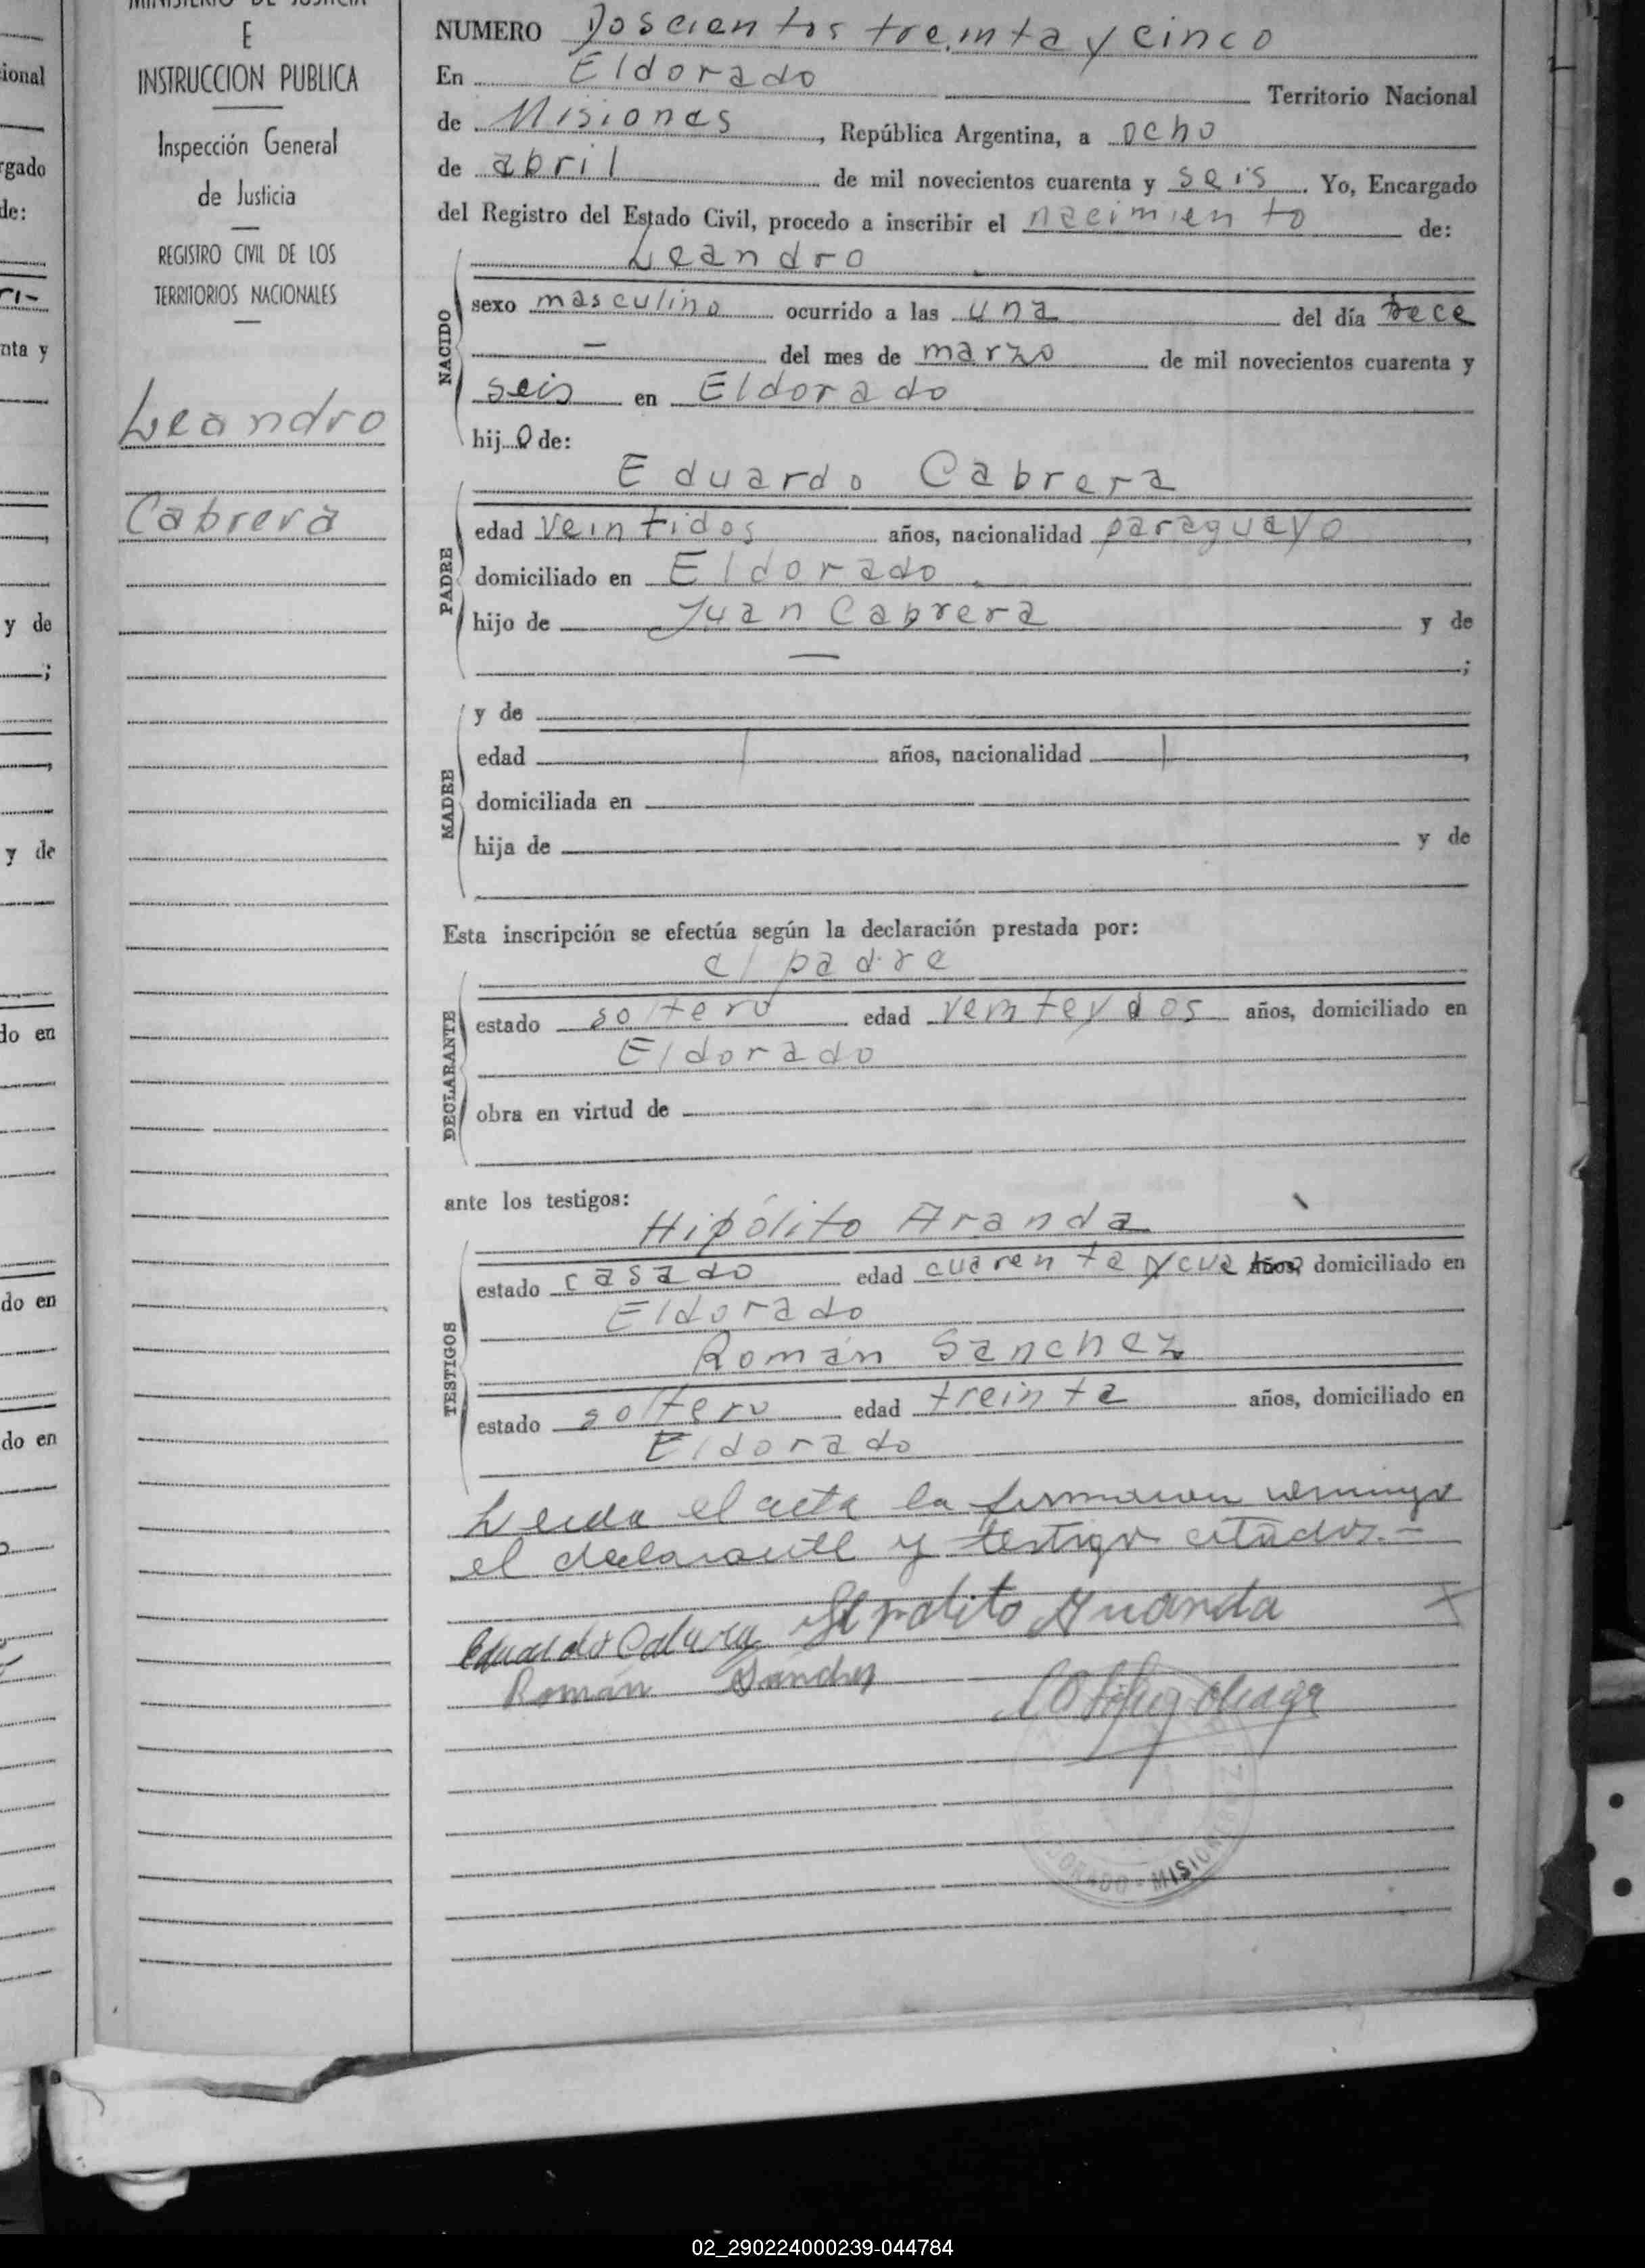 MINISTERIO DE JUSTICIA
E
INSTRUCCION PUBLICA
Inspección General
de Justicia
REGISTRO CIVIL DE LOS
TERRITORIOS NACIONALES
Leandro
Cabrera
ional
rgado
de:
nta y
y de
y de
do en
do en
do en
NUMERO Doscientos treinta y cinco
En Eldorado Territorio Nacional
de Misiones, República Argentina, a ocho
de abril de mil novecientos cuarenta y seis. Yo, Encargado
del Registro del Estado Civil, procedo a inscribir el nacimiento de:
NACIDO
Leandro
sexo masculino ocurrido a las una del día trece
— del mes de marzo de mil novecientos cuarenta y
seis en Eldorado
hijo de:
PADRE
Eduardo Cabrera
edad veintidos años, nacionalidad paraguayo,
domiciliado en Eldorado
hijo de Juan Cabrera y de
— ;
MADRE
y de
edad años, nacionalidad ,
domiciliada en
hija de y de
Esta inscripción se efectúa según la declaración prestada por:
DECLARANTE
el padre
estado soltero edad veinteydos años, domiciliado en
Eldorado
obra en virtud de
ante los testigos:
TESTIGOS
Hipólito Aranda
estado casado edad cuarenta y cua años, domiciliado en
Eldorado
Román Sanchez
estado soltero edad treinta años, domiciliado en
Eldorado
Leida el acta la firmaron conmigo
el declarante y testigos citados.—
Eduardo Cabrera Hipolito Aranda
Román Sánchez
ELDORADO - MISIONES
02_290224000239-044784